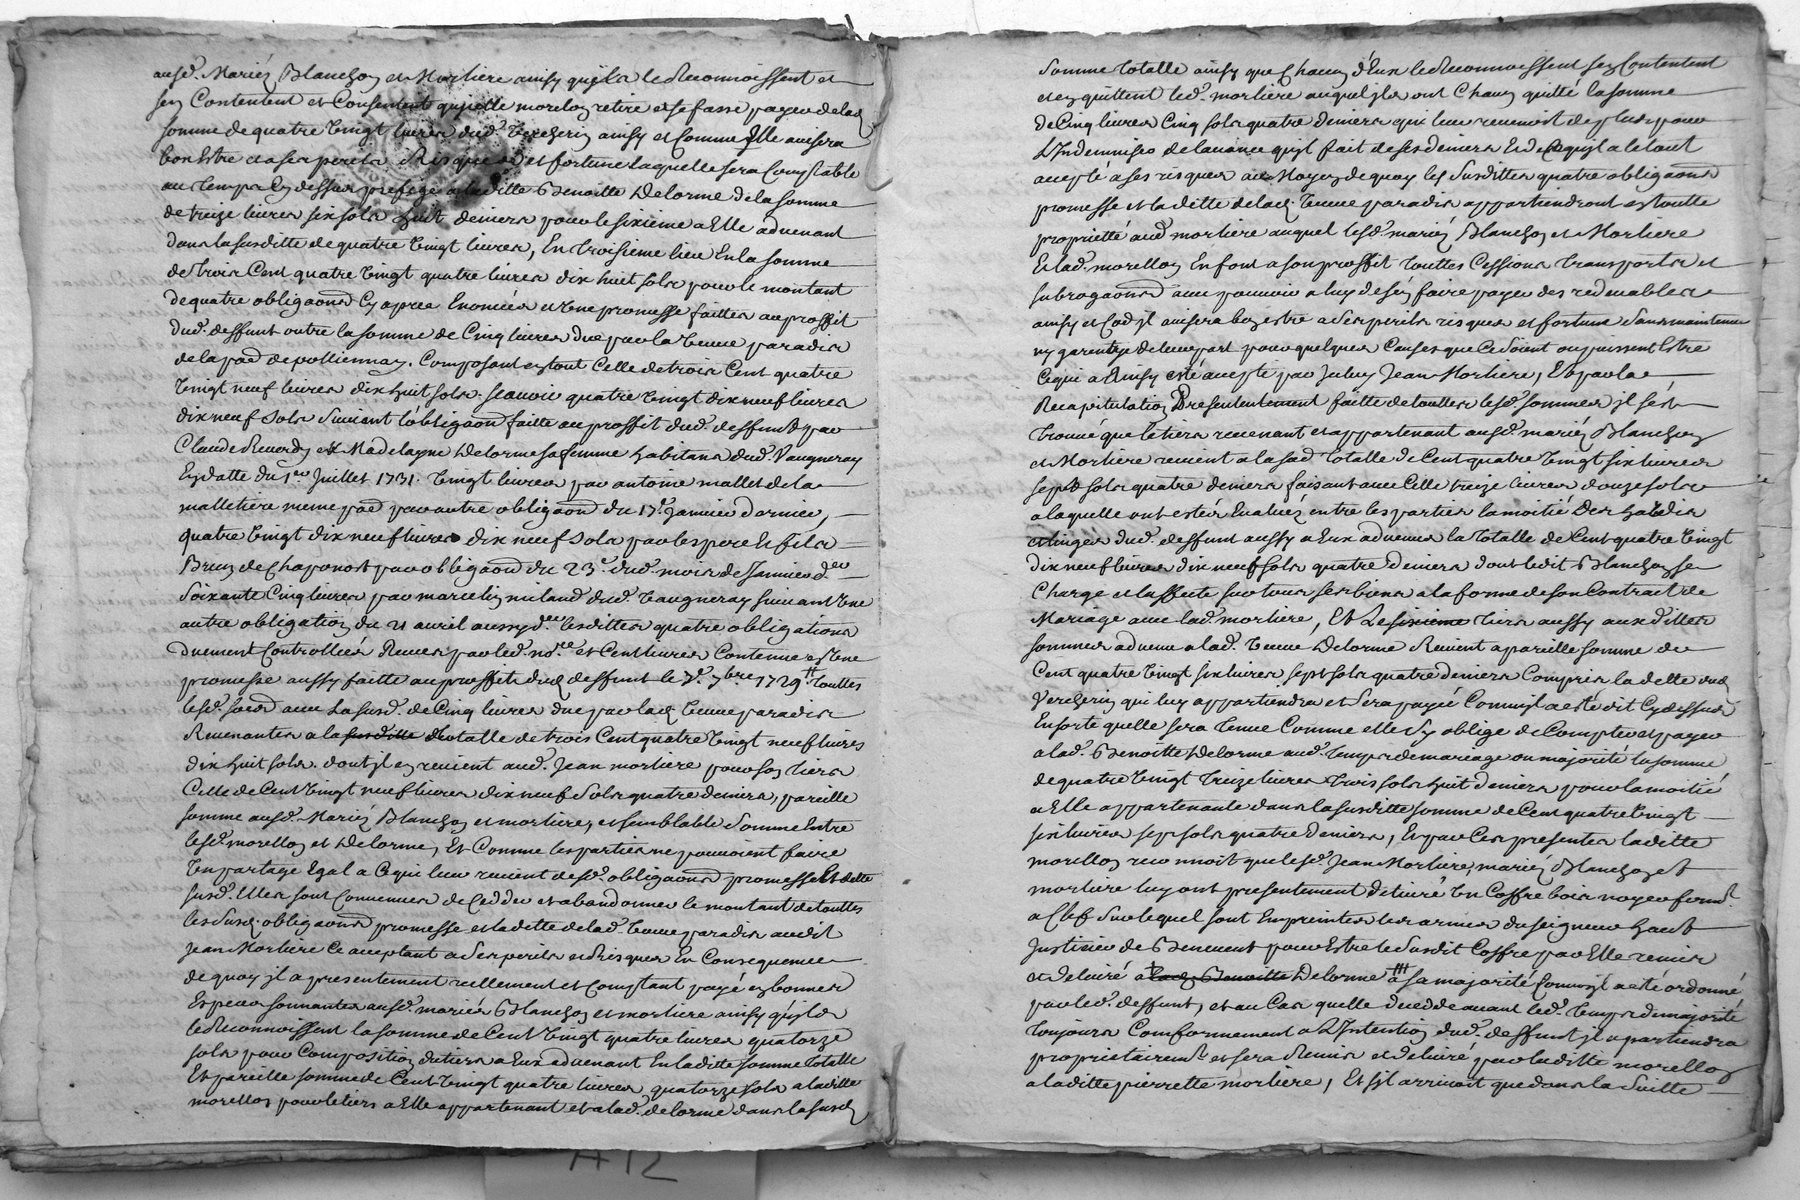 ausd. Mariéz Blanchon et Morliere ainsy qujls le Reconnoissent et
sen Contentent et Consentent quicelle morellon retire et se fasse payer de lad.
somme de quatre Vingt livres dud. Vercherin ainsy et Comme Elle avisera
bon Estre et a ses perils Risques et fortune laquelle sera Comptable
au temps Cy dessus prefigé a laditte Benoitte Delorme de la somme
de treize livres six sols huit deniers pour le sixieme a Elle advenant
dans la susditte de quatre Vingt livres, En troisieme lieu En la somme
de trois Cent quatre Vingt quatre livres dix huit sols pour le montant
de quatre obligaons Cy apres Enoncées et Une promesse faittes au proffit
dud. deffunt outre la somme de Cinq livres due par la Veuve paradis
de la psse de pollionnay. Composant en tout Celle de trois Cent quatre
Vingt neuf livres dix huit sols. scavoir quatre Vingt dix neuf livres
dix neuf sols Suivant l'obligaon faitte au proffit dud. deffunt par
Claude Reverdy et Madelayne Delorme sa femme habitans dud. Vaugneray
En datte du 1er Juillet 1731. Vingt livres par antoine mallet de la
malletiere meme psse par autre obligaon du 17e Janvier dernier,
quatre Vingt dix neuf livres dix neuf sols par les pere et fils
Brun de Chaponost par obligaon du 23e dud. mois de Janvier der
Soixante Cinq livres par marcelin milland dud. Vaugneray suivant Une
autre obligation du 21 avril aussy der lesdittes quatre obligations
duement Controllées Receues par led. nore et Cent livres Contenue en Une
promesse aussy faitte au proffit dud. deffunt le 7e 7bre 1729 Touttes
lesd. sommes avec la susd. de Cinq livres due par lad. Veuve paradis
Revenantes a la susditte totalle de trois Cent quatre Vingt neuf livres
dix huit sols. dont jl en revient aud. Jean morliere pour son tiers
Celle de Cent Vingt neuf livres dix neuf sols quatre deniers, pareille
somme ausd. Mariéz Blanchon et morliere, et semblable Somme Entre
lesd. morellon et Delorme, Et Comme les parties ne pouvoient faire
Un partage Egal a Ce qui leur revient desd. obligaons promesse Et dette
susd. Elles sont Convenues de Cedder et abandonner le montant de touttes
les susd. obligaons promesse et la dette de lad. Veuve paradis audit
Jean Morliere Ce acceptant a Ses perils et Risques En Consequence
de quoy jl a presentement reellement et Comptant payé en bonnes
Especes sonnantes ausd. mariés Blanchon et morliere ainsy qu'jls
le Reconnoissent la somme de Cent Vingt quatre livres quatorze
sols pour Composition du tiers a Eux advenant En laditte somme totalle
Et pareille somme de Cent Vingt quatre livres quatorze sols a laditte
morellon pour le tiers a Elle appartenant et a lad. delorme dans la susd.
Somme totalle ainsy que Chacun d'Eux le Reconnoissent sen Contentent
et en quittent led. morliere auquel jls ont Chacun quitté la somme
de Cinq livres Cinq sols quatre deniers qui leur revenoit de plus pour
L'Indemniser de l'avance qu'jl fait de ses deniers Et de Ce qu'jl a le tout
accepté a ses risques au Moyen de quoy les Susdittes quatre obligaons
promesse et la dette de lad. Veuve paradis appartiendront en toutte
proprietté aud. morliere auquel lesd. mariéz Blanchon et Morliere
Et lad. morellon En font a son proffit Touttes Cessions transports et
subrogaons avec pouvoir a luy de s'en faire payer des redevables
ainsy et Co͞e jl avisera bon estre a Ses perils risques et fortune Sans maintenue
ny garentye de leur part pour quelques Causes que Ce Soient ou puissent Estre
Ce qui a Eté ainsy accepté par Iceluy Jean Morliere, Et par la
Recapitulation Presentement faitte de touttes lesd. sommes jl s'est
trouvé que le tiers revenant et appartenant ausd. mariéz Blanchon
et Morliere revient a la sad. Totalle de Cent quatre Vingt six livres
sept sols quatre deniers faisant avec Celle treize livres douze sols
a laquelle ont estés Evaluéz entre les parties la moitié des habits
et linges dud. deffunt aussy a Eux advenus la Totalle de Cent quatre Vingt
dix neuf livres dix neuf sols quatre deniers dont ledit Blanchon se
Charge et l'affecte sur tous ses biens a la forme de son Contract de
Mariage avec lad. morliere, Et Le sixieme tiers aussy auxdittes
sommes advenu a lad. Veuve Delorme Revient a pareille somme de
Cent quatre Vingt six livres sept sols quatre deniers Compris la dette dud.
Vercherin qui luy appartiendra et Sera payé Comm'jl a esté dit Cy dessus
En sorte quelle sera tenue Comme elle S'y oblige de Compter et payer
a lad. Benoitte Delorme aud. Temps de mariage ou majorité la somme
de quatre Vingt treize livres trois sols huit deniers pour la moitié
a Elle appartenante dans la susditte somme de Cent quatre Vingt
six livres sept sols quatre Deniers, Et par Ces presentes laditte
morellon reconnoit que lesd. Jean Morliere, mariéz Blanchon et
morliere luy ont presentement délivré Un Coffre bois noyer fermt.
a Clef Sur lequel sont Empreintes les armes du seigneur haut
Justicier de Benevent pour Estre le Susdit Coffre par Elle remis
et délivré a lad. Benoitte Delorme a sa majorité Comm'jl a eté ordonné
par led. deffunt, et au Cas quelle decedde avant led. Temps de majorité
toujours Conformement a L'Intention dud. deffunt jl apartiendra
proprietairemt. et sera Remis et délivré par laditte morellon
a laditte pierrette morliere, Et s'jl arrivoit que dans la Suitte